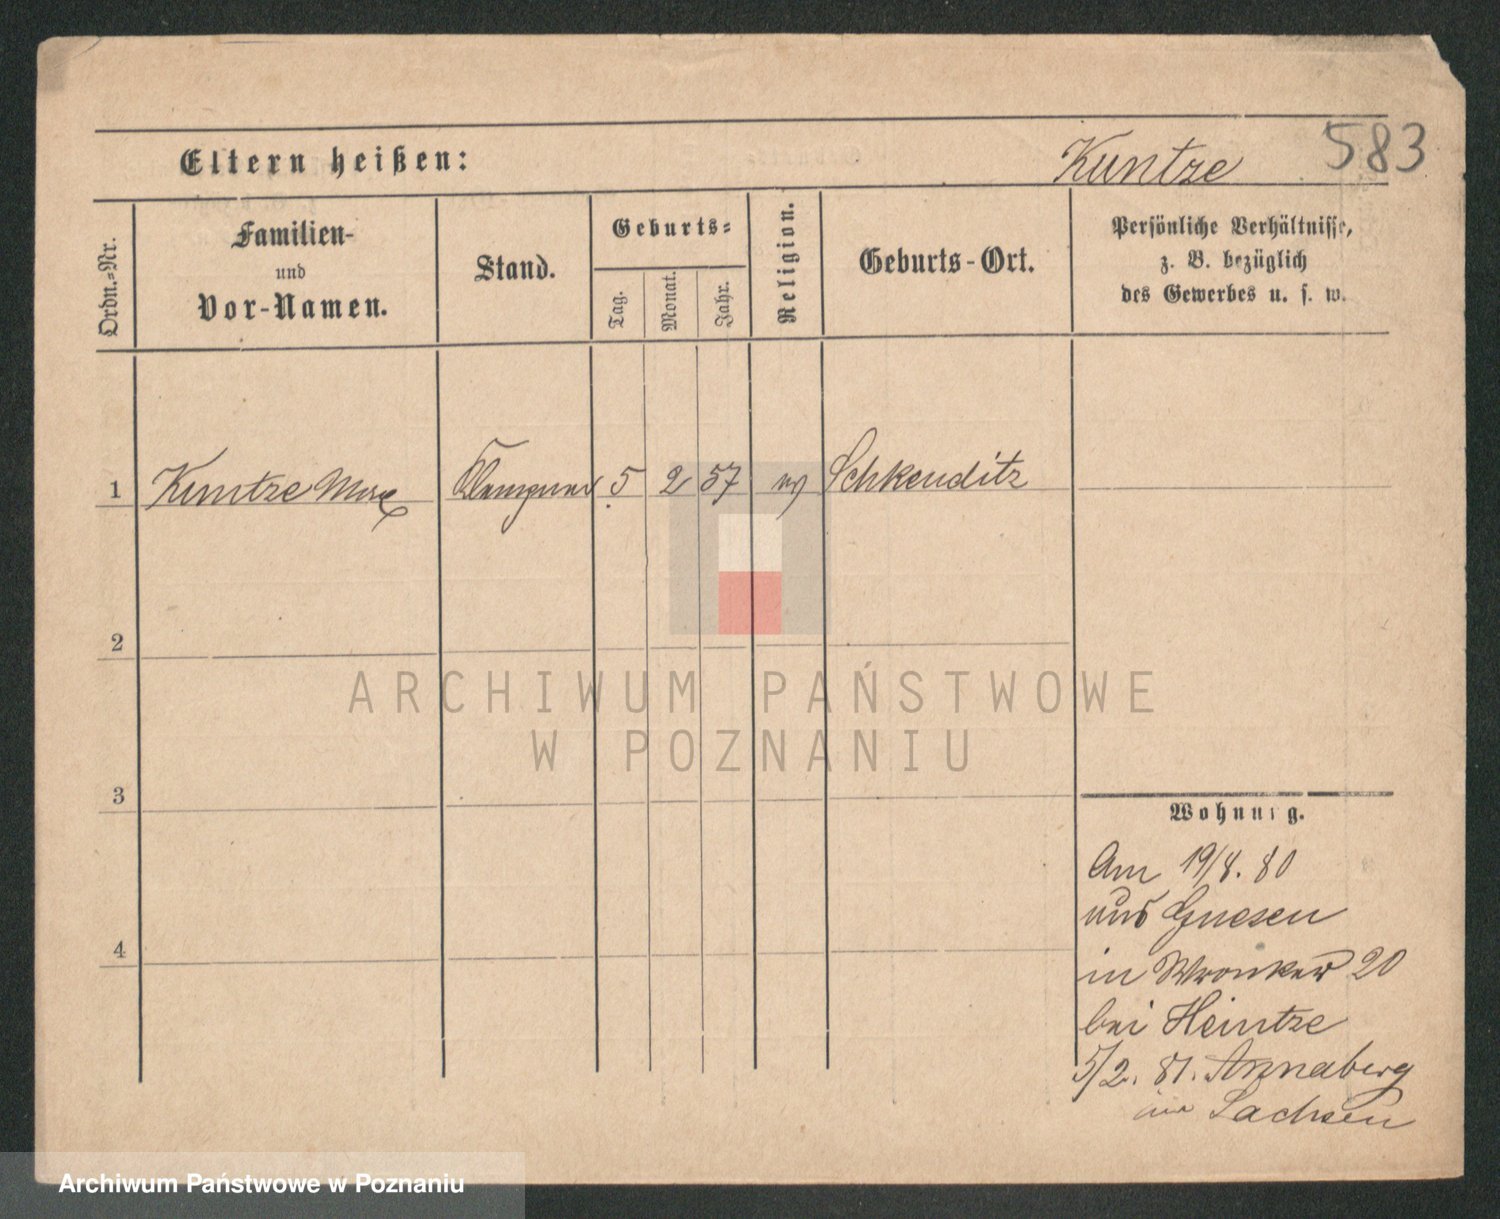 583
Eltern heißen:
Kuntze
Ordn.-Nr.
Familien-
und
Vor-Namen.
Stand.
Geburts-
Tag.
Monat.
Jahr.
Religion.
Geburts-Ort.
Persönliche Verhältnisse,
z. B. bezüglich
des Gewerbes u. s. w.
1 Kuntze Max Klempner 5 2 57 ev Schkeuditz
2
3
4
Wohnung.
Am 19/8. 80
aus Gnesen
in Wronker 20
bei Heintze
5/2. 81. Annaberg
in Sachsen
ARCHIWUM PAŃSTWOWE
W POZNANIU
Archiwum Państwowe w Poznaniu